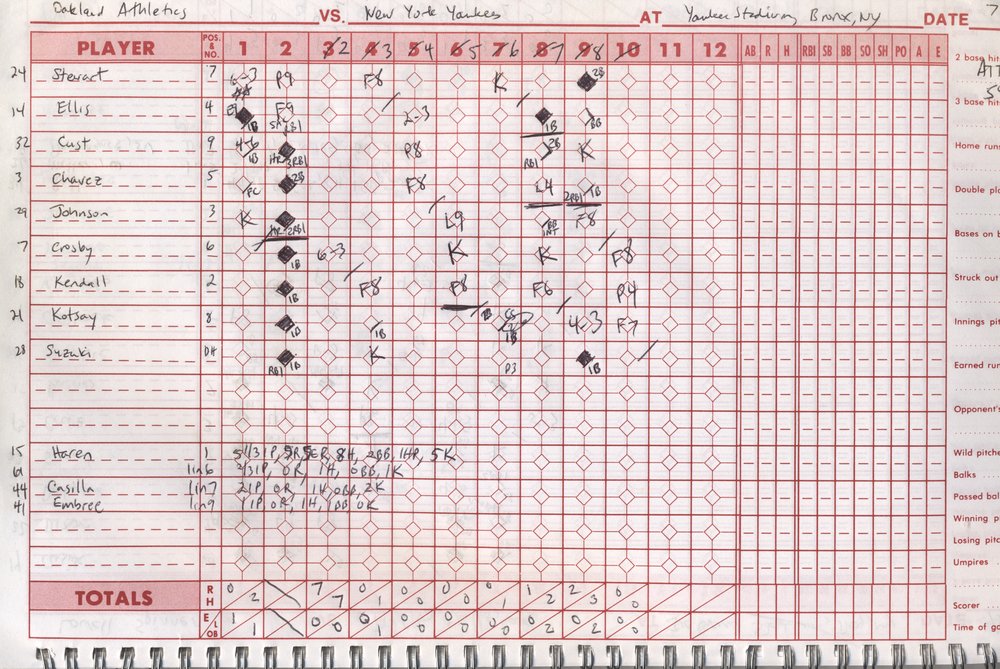 Oakland Athletics VS. New York Yankees AT Yankee Stadium, Bronx, NY DATE 7
PLAYER POS. & NO. 1 2 3 2 4 3 5 4 6 5 7 6 8 7 9 8 10 11 12 AB R H RBI SB BB SO SH PO A E
2 base hit
24 Stewart 7 6-3 P9 F8 K 2B
ATT
14 Ellis 4 1B F9 2-3 1B BB
3 base hit
32 Cust 9 4-6 HR 3RBI P8 2B RBI K
Home runs
3 Chavez 5 FC 2B F8 L4 2RBI 1B
Double pla
29 Johnson 3 K HR 2RBI L9 BB INT F8
Bases on b
7 Crosby 6 1B 6-3 K K F8
18 Kendall 2 1B F8 F8 F6 P4
Struck out
21 Kotsay 8 1B 1B CS 1B 4-3 F7
Innings pit
28 Suzuki DH RBI 1B K P3 1B
Earned run
Opponent's
15 Haren 1 5 1/3 IP, 5R, 5ER, 8H, 2BB, 1HR, 5K
Wild pitche
61 1in6 2/3IP, 0R, 1H, 0BB, 1K
Balks
44 Casilla 1in7 2IP 0R, 1H, 0BB, 2K
Passed bal
41 Embree 1in9 1IP 0R, 1H, 1BB 0K
Winning p
Losing pitc
Umpires
TOTALS R H 0 2 7 7 0 1 0 0 0 0 0 1 1 2 2 3 0 0
Scorer
E LOB 1 1 0 0 0 1 0 0 0 0 0 0 0 2 0 2 0 0
Time of ga